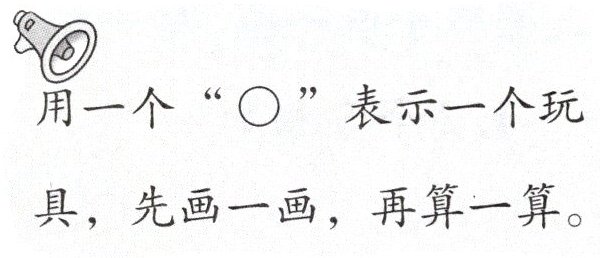 用一个“○”表示一个玩
具，先画一画，再算一算。